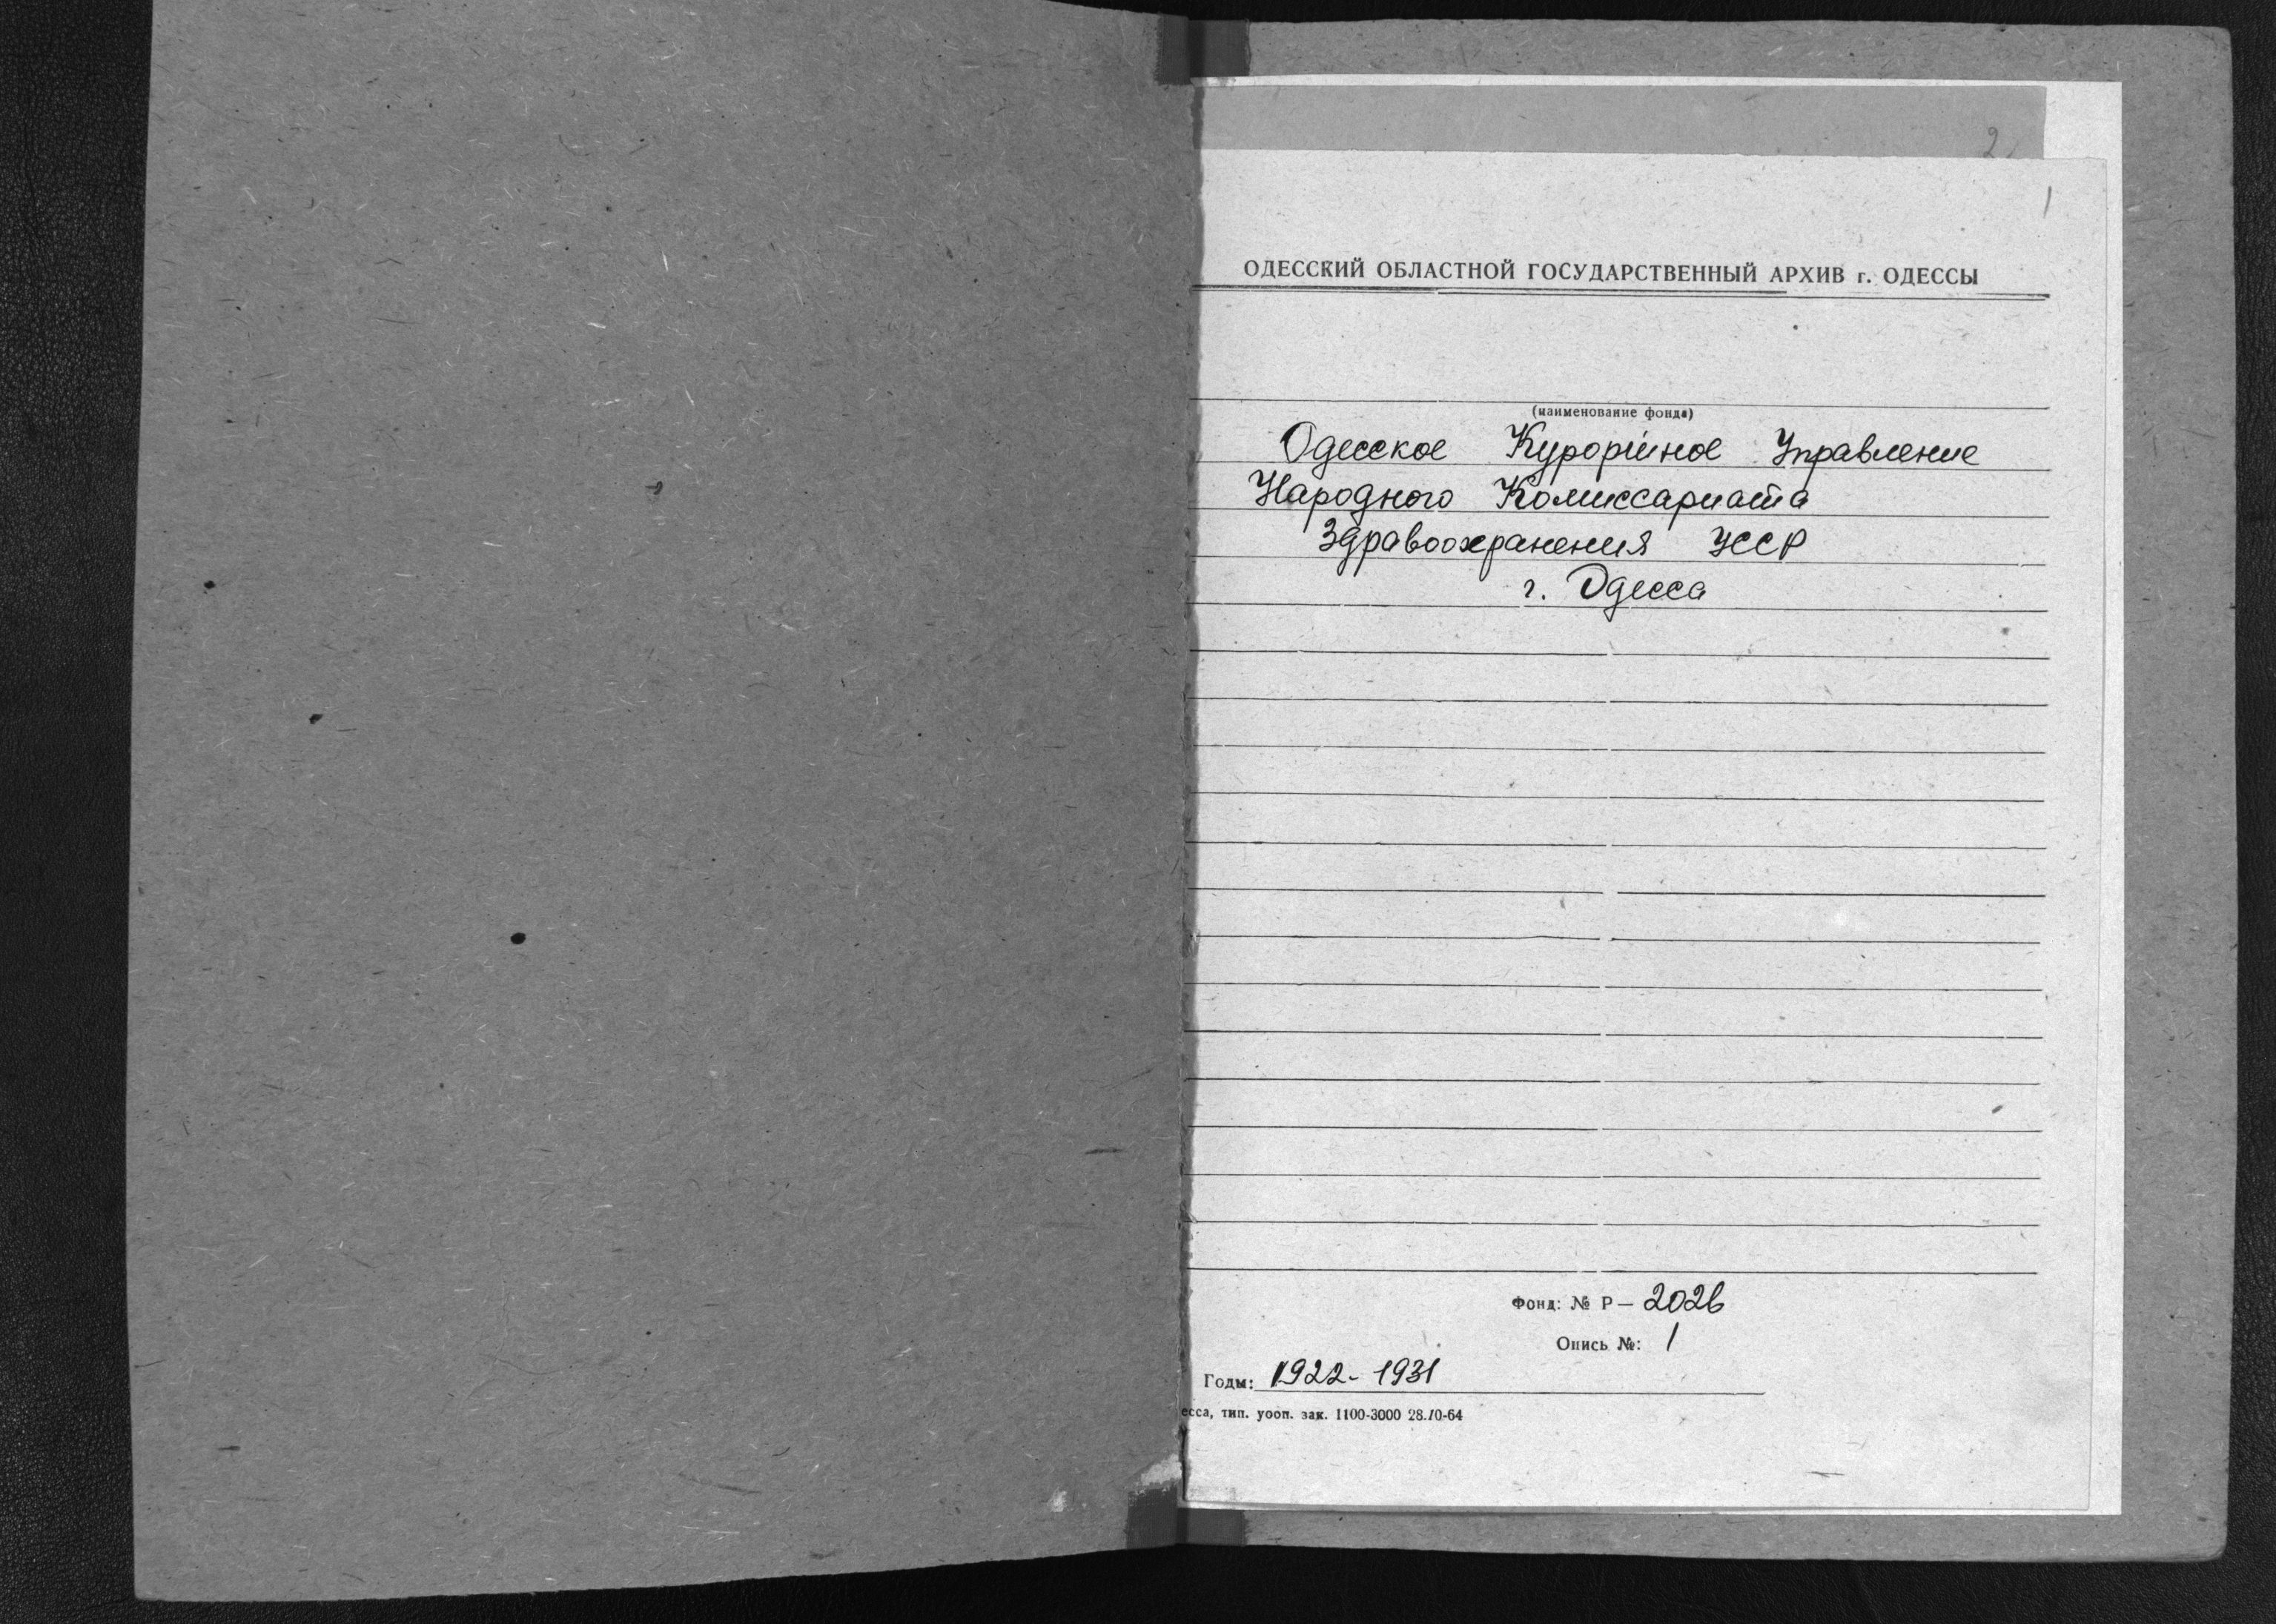 2
1
ОДЕССКИЙ ОБЛАСТНОЙ ГОСУДАРСТВЕННЫЙ АРХИВ г. ОДЕССЫ
(наименование фонда)
Одесское Курортное Управление
Народного Комиссариата
Здравоохранения УССР
г. Одесса
Фонд: № Р — 2026
Опись №: 1
Годы: 1922 - 1931
есса, тип. уооп. зак. 1100-3000 28.10-64